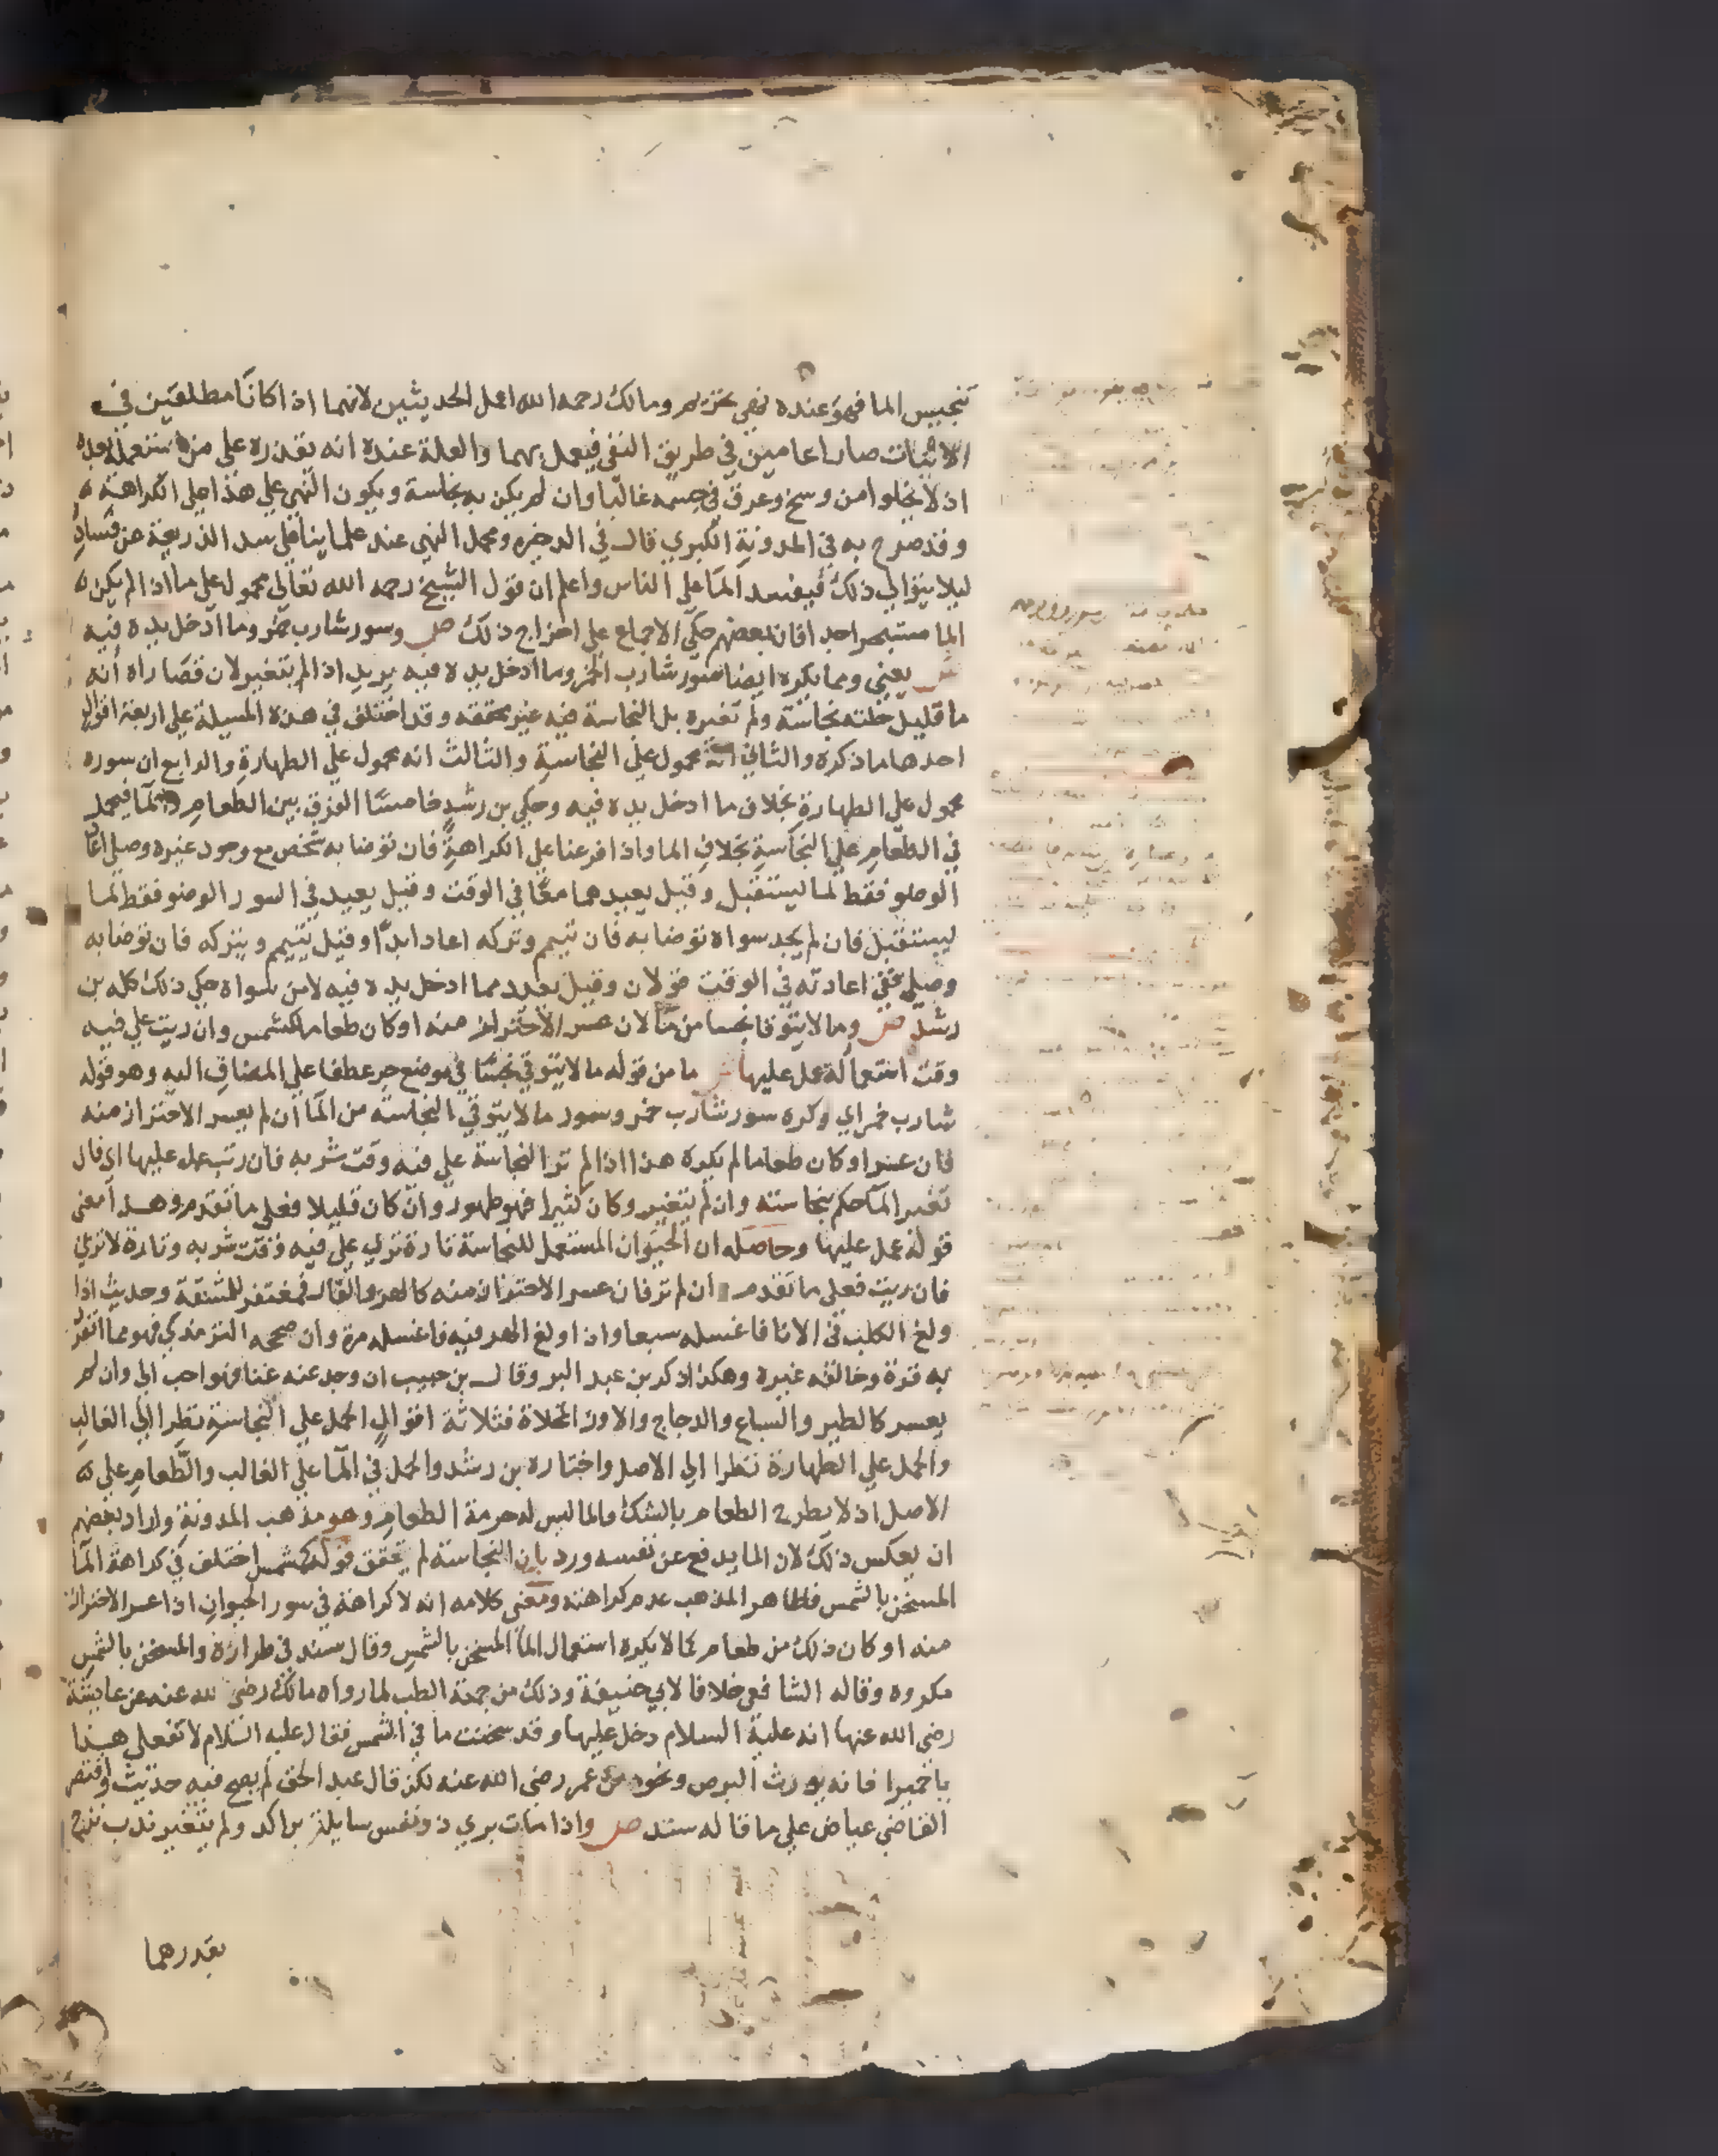 تنجيس الما فهو عنده نهي تحريم ومالك رحمه الله اعمل الحديثين لانهما اذا كانا مطلقين في
الاثبات صارا عامين في طريق النفي فيعمل بهما والعلة عنده انه يقذره على من يستعمله بعده
اذ لا يخلوا من وسخ وعرق في جسمه غالبا وان لم يكن به نجاسة ويكون النهي علي هذا علي الكراهة
وقد صرح به في المدونة الكبري قال في الدخيره ومحمل النهي عند علماينا علي سد الذريعة عن فساده
ليلا يتوالي ذلك فيفسد الما علي الناس واعلم ان قول الشيخ رحمه الله تعالي محمول علي ما اذا لم يكن
الما مستبحرا جدا فان بعضهم حكي الاجماع علي اخراج ذلك ص وسور شارب خمر وما ادخل يده فيه
ش يعني ومما يكره ايضا سور شارب الخمر وما ادخل يده فيه يريد اذا لم يتغير لان قصاراه أنه
ما قليل خلته نجاسة ولم تغيره بل النجاسة فيه غير محققه وقد اختلف في هذه المسيلة علي اربعة اقوال
احدها ما ذكره والثاني انه محمول علي النجاسة والثالث انه محمول علي الطهارة والرابع ان سوره
محمول علي الطهارة بخلاف ما ادخل يده فيه وحكي بن رشد خامسا الفرق بين الطعام والما فيحمل
في الطعام علي النجاسة بخلاف الما واذا فرعنا علي الكراهة فان توضا به شخص مع وجود غيره وصلي اعاد
الوضو فقط لما يستقبل وقيل يعيدهما معا في الوقت وقيل يعيد في السور الوضو فقط لما
يستقبل فان لم يجد سواه توضا به فان تيمم وتركه اعاد ابدا وقيل يتيمم ويتركه فان توضا به
وصلي ففي اعادته في الوقت قولان وقيل يعيد مما ادخل يده فيه لا من سواه حكي ذلك كله بن
رشد ص وما لا يتوقا نجسا من ما لان عسر الاحتراز منه او كان طعاما كمشمس وان ريت علي فيه
وقت استعماله عمل عليها ش ما من قوله ما لا يتوقي نجسا في موضع جر عطفا علي المضاف اليه وهو قوله
شارب خمر اي وكره سور شارب خمر وسور ما لا يتوقي النجاسه من الما ان لم يعسر الاحتراز منه
فان عسر او كان طعاما لم يكره هذا اذا لم تر النجاسة علي فيه وقت شربه فان رتيت عمل عليها اي فان
تغير الما حكم بنجاسته وان لم يتغير وكان كثيرا فهو طهور وان كان قليلا فعلي ما تقدم وهذا معني
قوله عمل عليها وحاصله ان الحيوان المستعمل للنجاسة تارة تري علي فيه وقت شربه وتارة لا تري
فان ريت فعلي ما تقدم وان لم تر فان عسر الاحتراز منه كالهر والفار فمغتفر للمشقة وحديث اذا
ولغ الكلب في الانا فاغسله سبعا واذا ولغ الهر فيه فاغسله مرة وان صححه الترمذي فهو مما انفرد
به قرة وخالفه غيره وهكذا ذكر بن عبد البر وقال بن حبيب ان وجد عنه غنا فهو احب الي وان لم
يعسر كالطير والسباع والدجاج والاوز المخلاة فثلاثة اقوال الحمل علي النجاسة نظرا الي الغالب
والحمل علي الطهارة نظرا الي الاصل واختاره بن رشد والحمل في الما علي الغالب والطعام علي
الاصل اذ لا يطرح الطعام بالشك والما ليس له حرمة الطعام وهو مذهب المدونة واراد بعضهم
ان يعكس ذلك لان الما يدفع عن نفسه ورد بان النجاسة لم تحقق قوله كمشمس اختلف في كراهة الما
المسخن بالشمس فظاهر المذهب عدم كراهته ومعني كلامه انه لا كراهة في سور الحيوان اذا عسر الاحتراز
منه او كان ذلك من طعام كما لا يكره استعمال الما المسخن بالشمس وقال سند في طرازه والمسخن بالشمس
مكروه وقاله الشافعي خلافا لابي حنيفة وذلك من جهة الطب لما رواه مالك رضي الله عنه عن عايشة
رضي الله عنها انه عليه السلام دخل عليها وقد سخنت ما في الشمس فقال عليه السلام لا تفعلي هذا
يا حميرا فانه يورث البرص ونحوه عن عمر رضي الله عنه لكن قال عبد الحق لم يصح فيه حديث واقتصر
القاضي عياض علي ما قاله سند ص واذا مات بري ذو نفس سايلة براكد ولم يتغير ندب نزح
بقدرهما